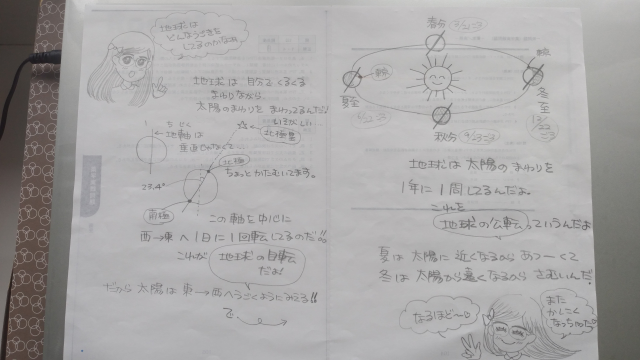 地球は
どんなうごきを
してるのかなぁ
地球は 自分でくるくる
まわりながら
太陽のまわりを まわってるんだよ!
いそがしい…
ちじく
地軸は
垂直でなくて…
北極星
北極
ちょっとかたむいてます。
23.4°
南極
この軸を中心に
西→東へ1日に1回転してるのだ!!
これが
地球の自転
だよ!
だから 太陽は 東→西へうごくようにみえる!!
で、
春分
3/21ごろ
夏至
冬至
12/22ごろ
秋分
9/23ごろ
地球は 太陽の まわりを
1年に 1周してるんだよ。
これを
地球の公転っていうんだよ
夏は 太陽に 近くなるから あつーくて
冬は 太陽から遠くなるから さむいんだ!
なるほど〜
また
かしこく
なっちゃった